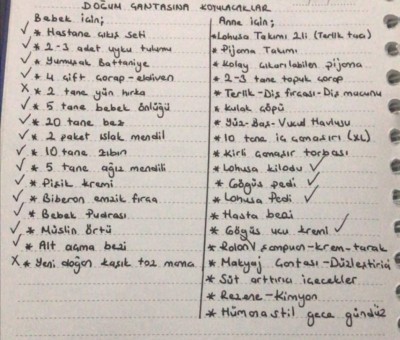 DOĞUM ÇANTASINA KOYULACAKLAR
Bebek için;
✓ * Hastane çıkış seti
✓ * 2-3 adet uyku tulumu
✓ * Yumuşak Battaniye
✓ * 4 çift çorap-eldiven
X * 2 tane yün hırka
✓ * 5 tane bebek önlüğü
✓ * 20 tane bez
✓ * 2 paket ıslak mendil
✓ * 10 tane zıbın
✓ * 5 tane ağız mendili
✓ * Pişik kremi
✓ * Biberon emzik fırça
✓ * Bebek Pudrası
✓ * Müslin Örtü
✓ * Alt açma bezi
X * Yeni doğan kaşık toz mama
Anne için;
* Lohusa Takımı 2li (Terlik taca)
* Pijama Takımı
* Kolay çıkarılabilen pijama
* 2-3 tane topuk çorap
* Terlik-Diş fırçası-Diş macunu
* Kulak çöpü
* Yüz-Baş-Vucud Havlusu
* 10 tane iç çamaşırı (XL)
* Kirli çamaşır torbası
* Lohusa kilodu ✓
* Göğüs pedi ✓
* Lohusa Pedi ✓
* Hasta bezi
* Göğüs ucu kremi ✓
* Rolon ✓ şampuan-krem-tarak
* Makyaj Çantası-Düzleştirici
* Süt arttırıcı içecekler
* Rezene-Kimyon
* Hümanastil gece gündüz